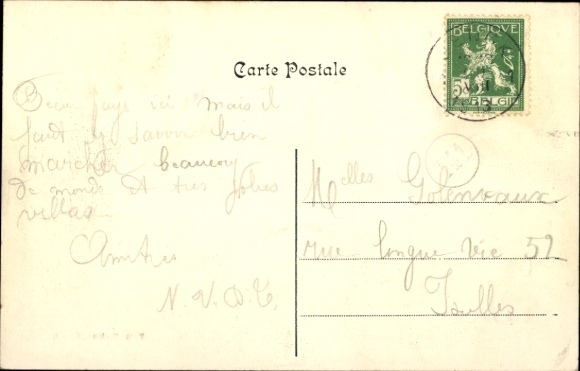 Carte Postale
BELGIQUE
BELGIË
Beau pays ici mais il
faut y savoir bien
marcher beaucoup
de monde et très jolies
villas
Amitiés
N. V. D. C.
Melles Golenvaux
rue longue vie 52
Ixelles